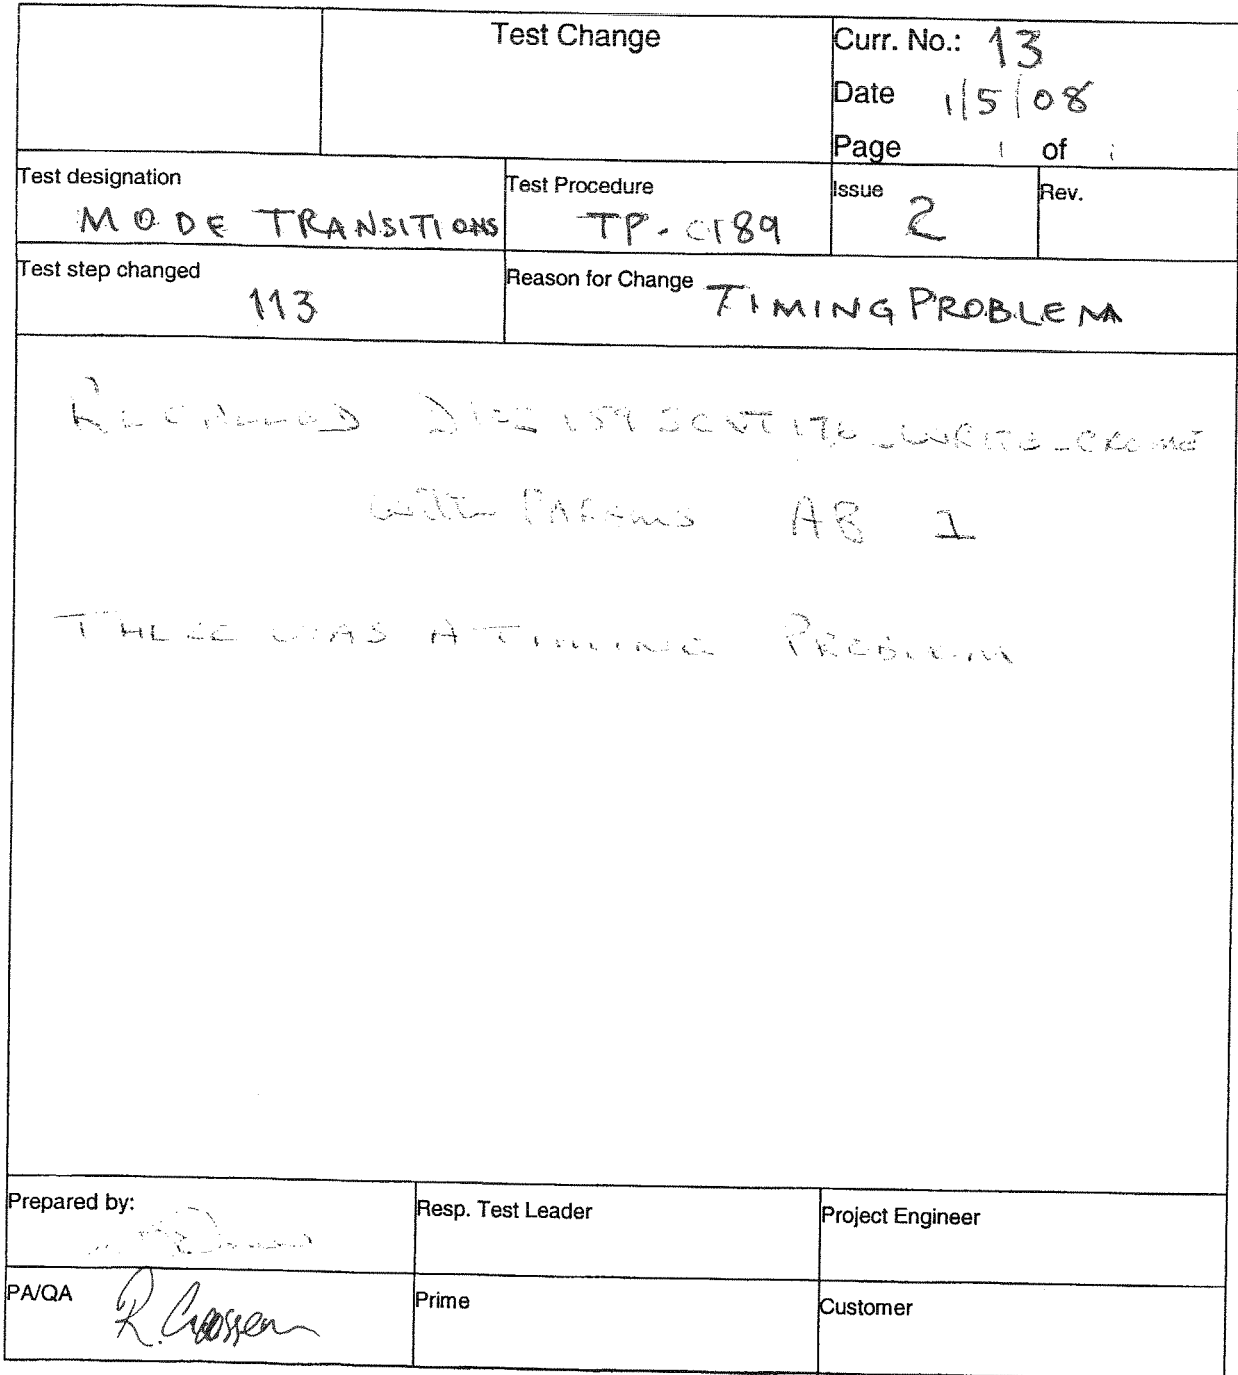 Test Change
Curr. No.: 13
Date 1/5/08
Page 1 of 1
Test designation
MODE TRANSITIONS
Test Procedure
TP-CT89
Issue 2
Rev.
Test step changed
113
Reason for Change TIMING PROBLEM
With PARAMS AB 1
THERE WAS A TIMING PROBLEM
Prepared by:
Resp. Test Leader
Project Engineer
PA/QA
Prime
Customer